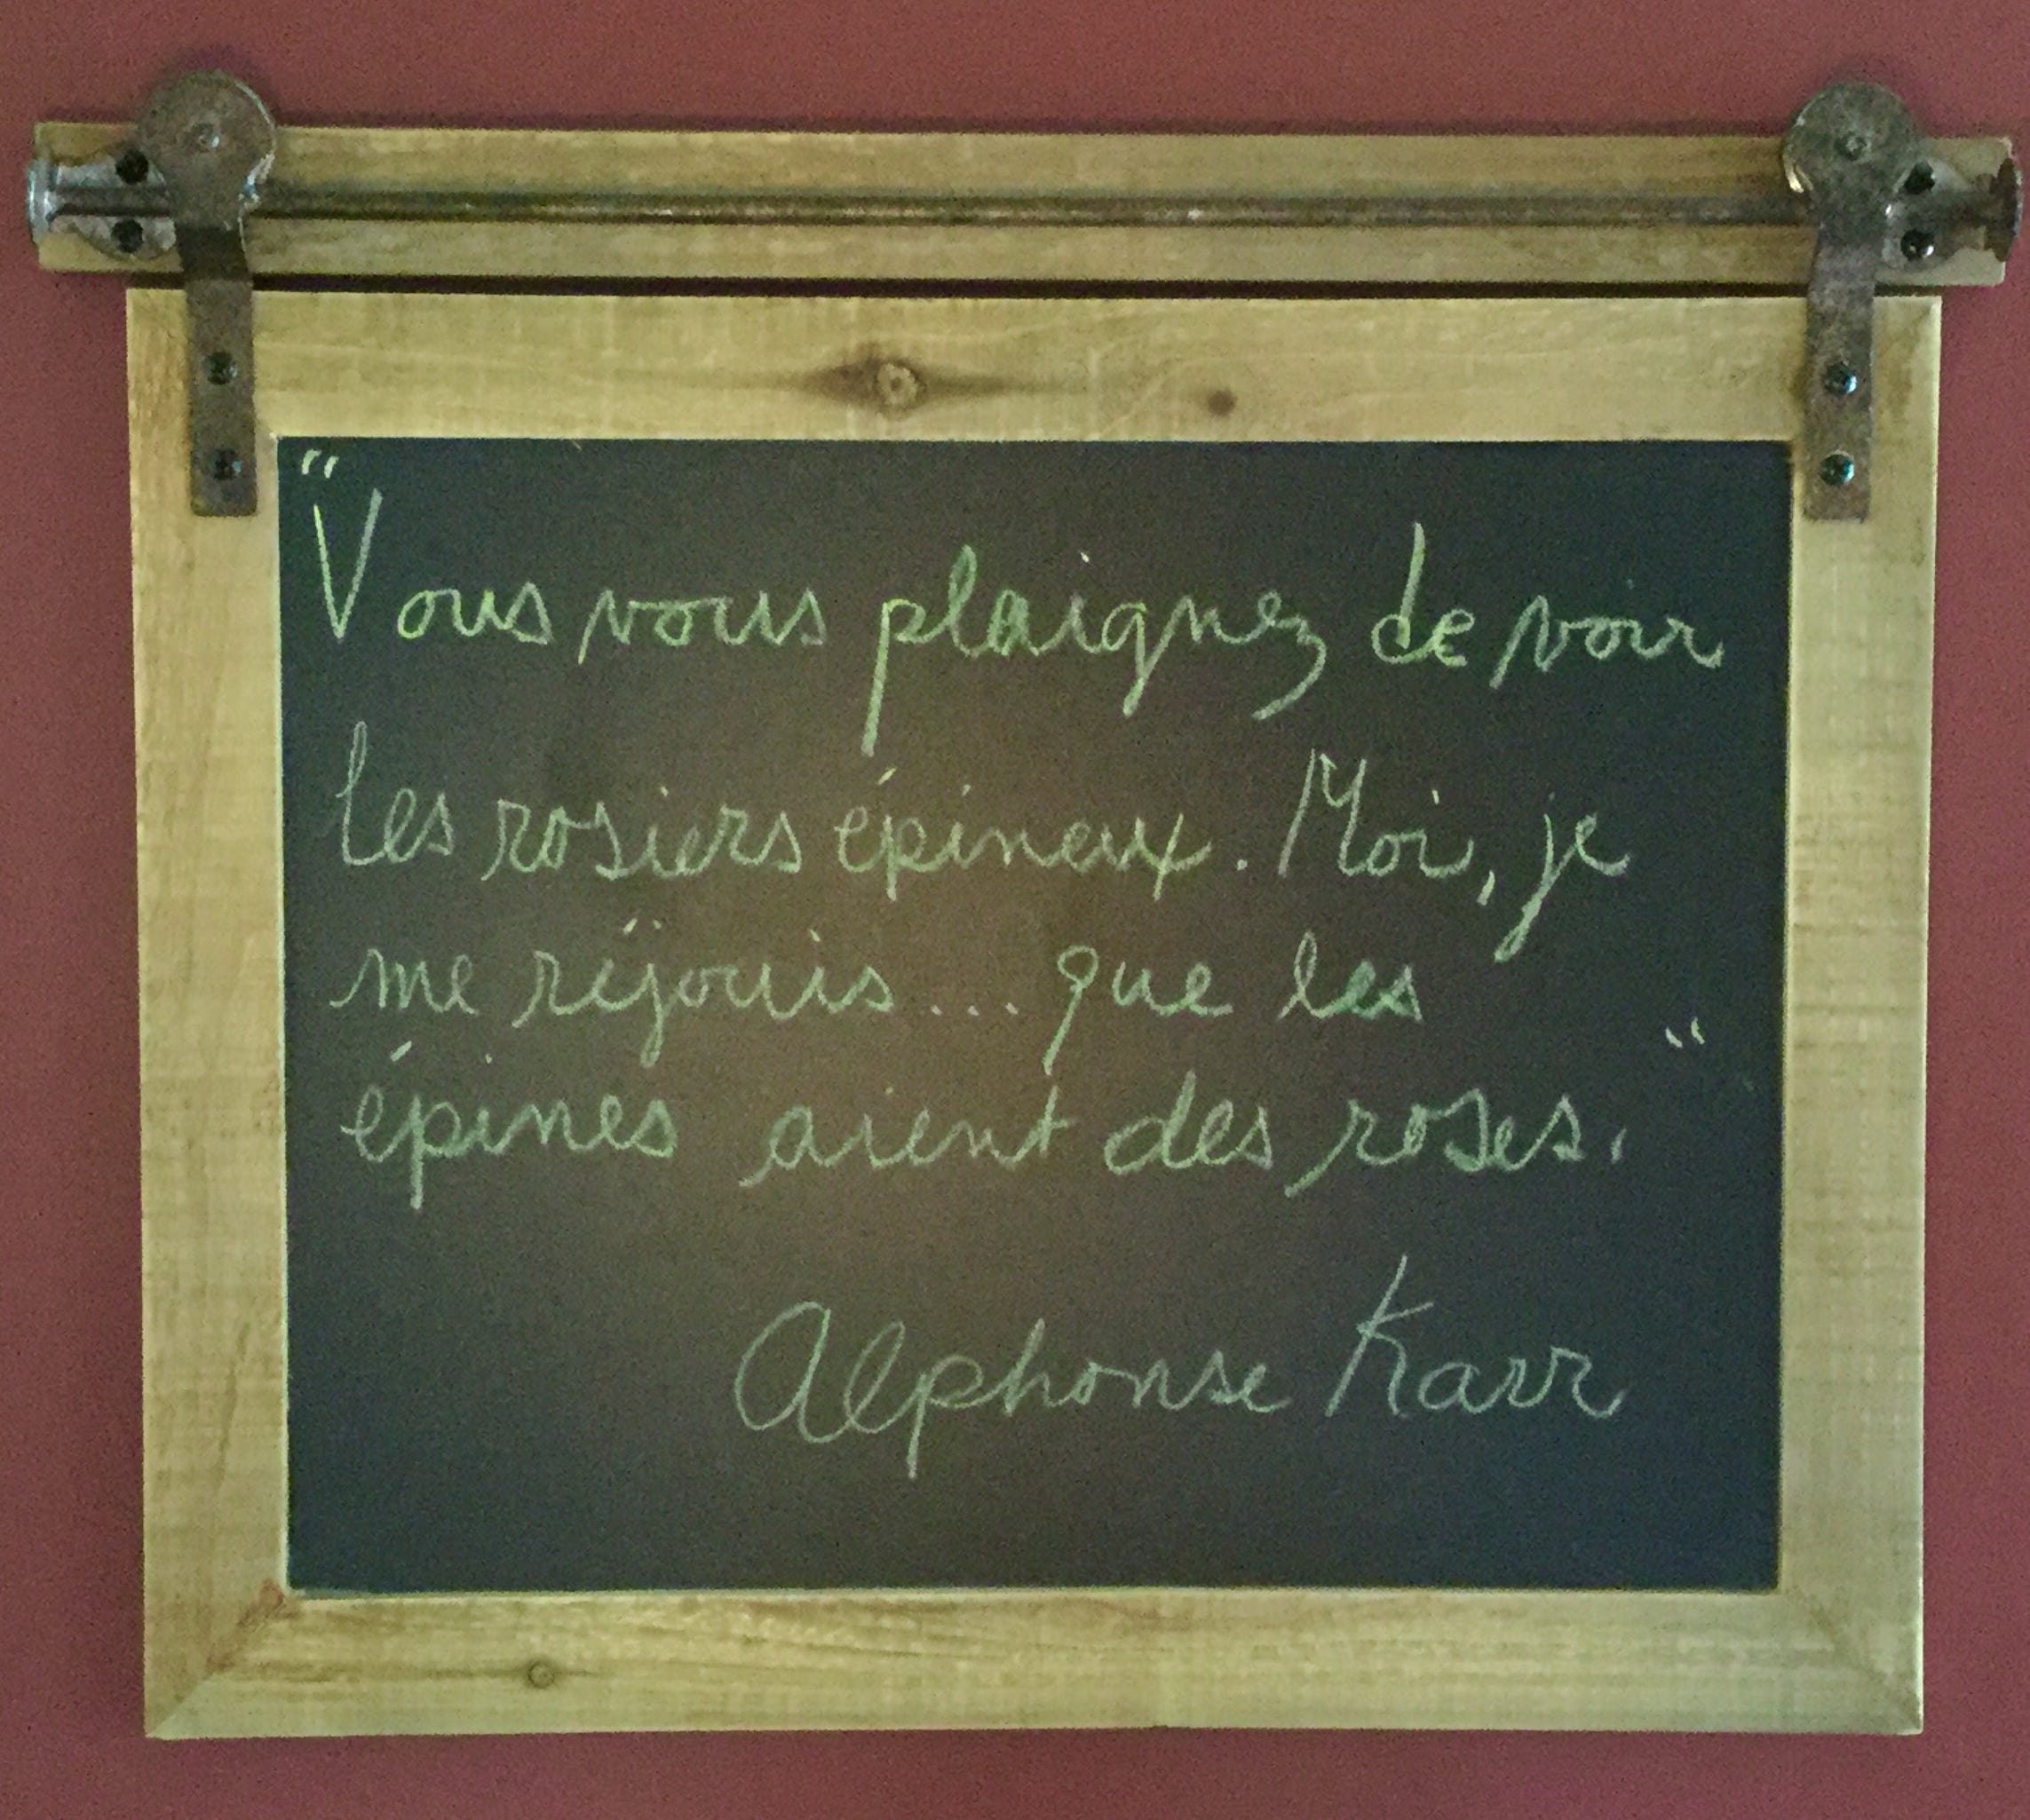 "Vous vous plaignez de voir
les rosiers épineux. Moi, je
me réjouis... que les
épines aient des roses."
Alphonse Karr